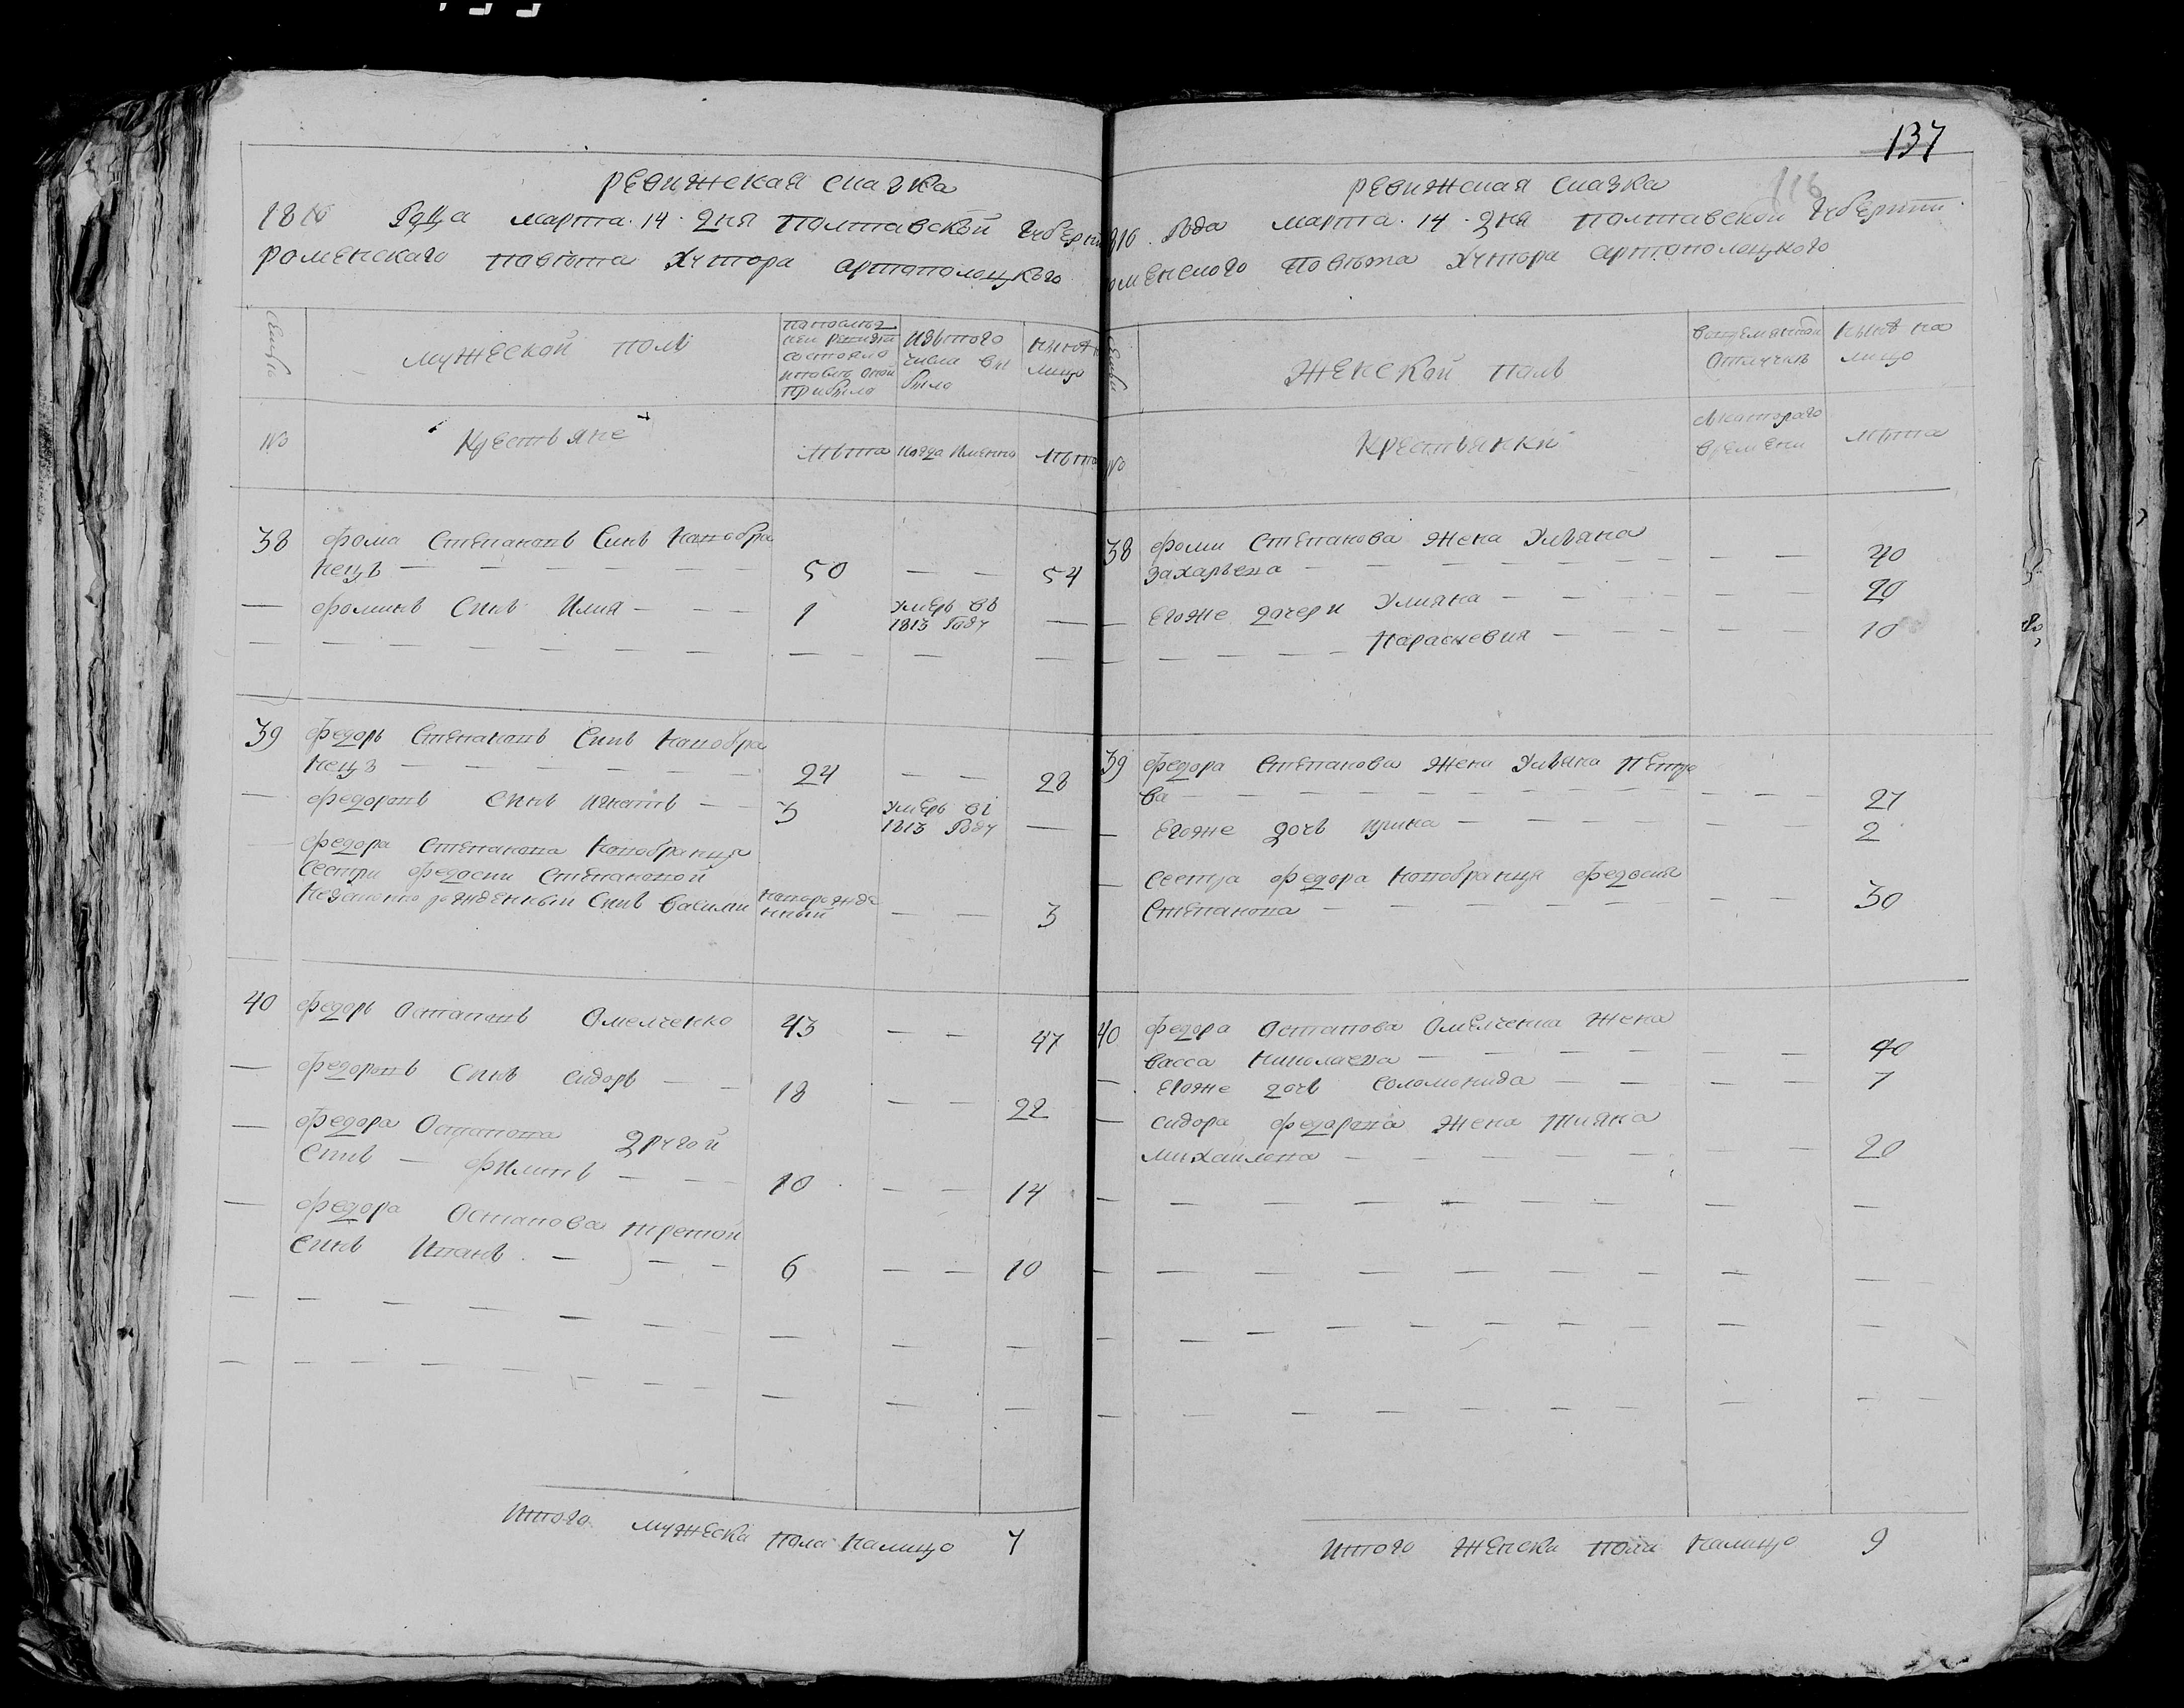 ревижская сказка
1816 Года марта 14 дня полтавской губерни
роменского повѣта хутора артополоцкого
семьи
мужеской полъ
напослѣд
ней ревизи
состояло
ипослѣ оной
прибыло
изътого
числа вы
было
нынѣ на
лицо
№
крестьяне
лѣта
когда имянно
лѣта
38
фома степановъ синъ коновра
нецъ — — — 50 — — 54
— фоминъ синъ илия — — 1 умеръ въ
1813 году —
39 федоръ степановъ синъ коновра
нецъ — — — 24 — — 28
— федоровъ синъ игнатъ — — 3 умеръ въ
1813 году —
— федора степанова коновранця
сестри федосии степановой
незаконно рожденный синъ василий
новорожде
нный — — 3
40 федоръ остаповъ омелченко 43 — — 47
— федоровъ синъ сидоръ — — 18 — — 22
— федора остапова другой
синъ — филипъ — — 10 — — 14
— федора остапова третой
синъ иванъ — — — 6 — — 10
итого мужеска пола налицо 7
137
116
ревижская сказка
816 года марта 14 дня полтавской губерnии
оменского повѣта хутора артополоцкого
семьи
женской полъ
вовременной
отлучкѣ
нынѣ на
лицо
№
крестьянки
скотораго
времени
лѣта
38 фоми степанова жена ульяна
захарьева — — — 40
егоже дочери улияна — — — 20
парасковия — — — 10
39 федора степанова жена ульяна петро
ва — — — 27
— егоже дочь ирина — — — 2
— сестра федора коновранця федосия
степанова — — — 30
40 федора остапова омелченка жена
васса николаева — — — 40
— егоже дочь соломонида — — — 7
— сидора федорова жена тияна
михайлова — — — 20
итого женска пола налицо 9